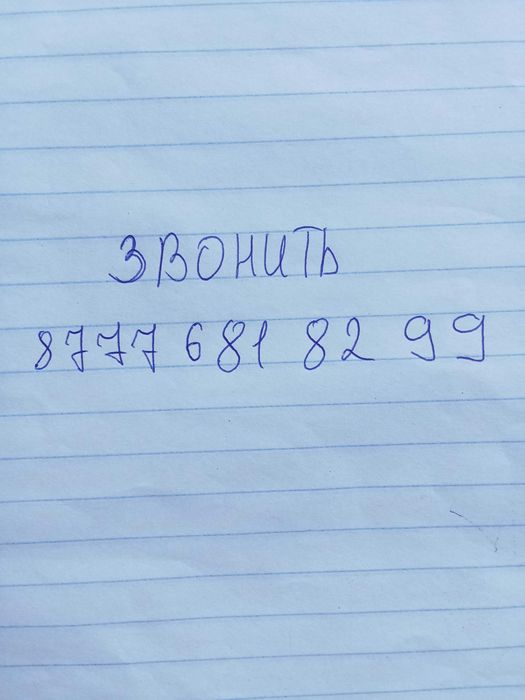 ЗВОНИТЬ
8777 681 82 99